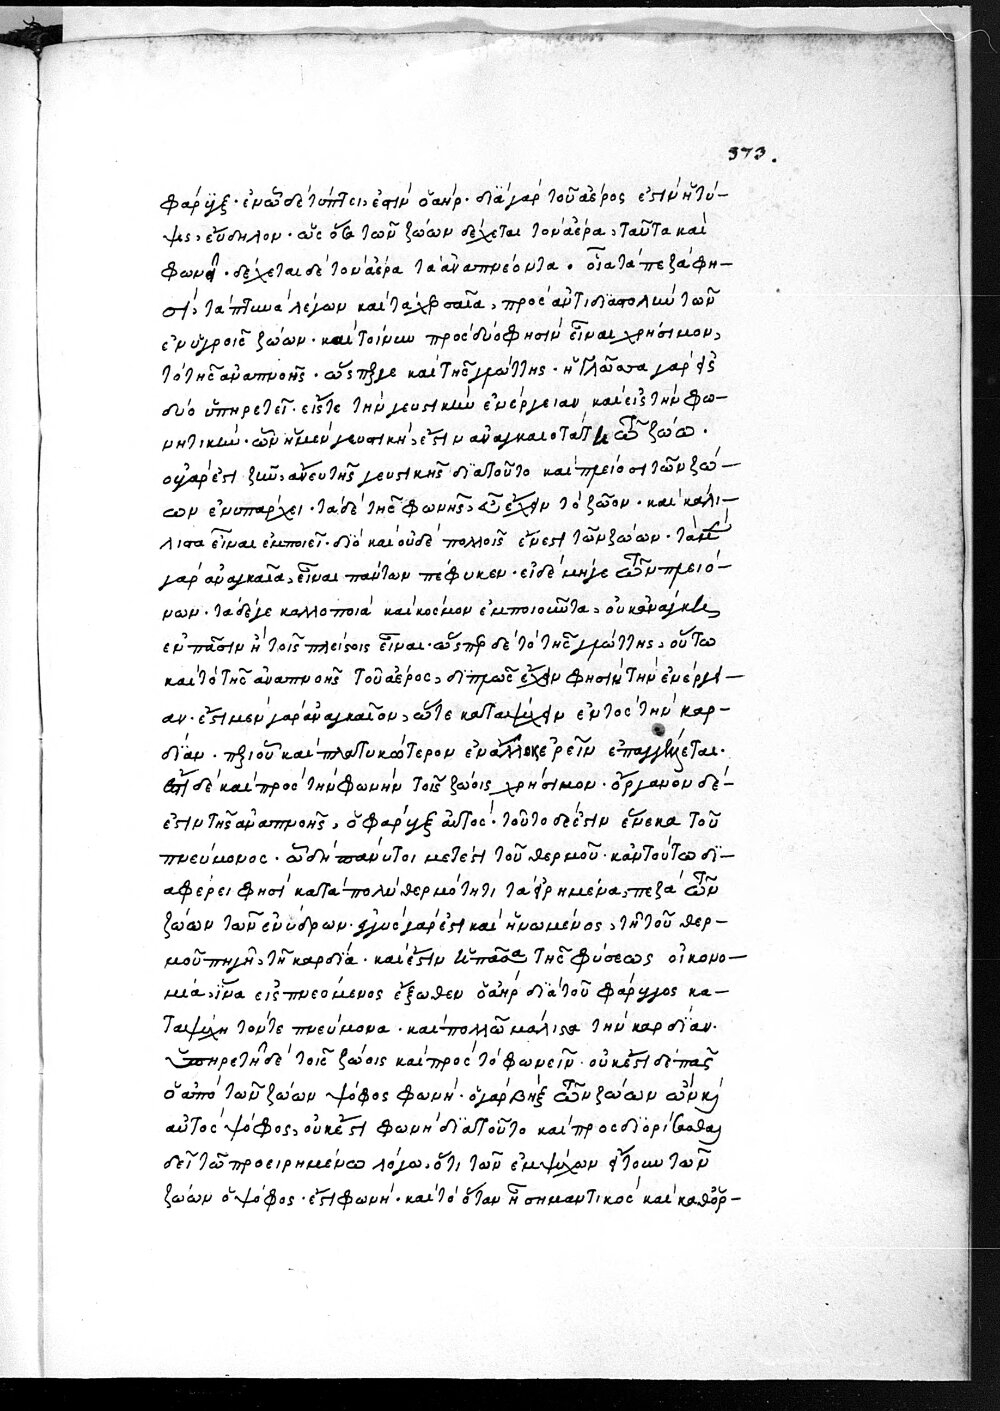 373.
φάρυξ· ἐν ᾧ δὲ τύπτει, ἐστὶν ὁ ἀὴρ· διὰ γὰρ τοῦ ἀέρος ἐστὶν ἡ τύ-
ψις, εὔδηλον· ὡς ὅσα τῶν ζώων δέχεται τὸν ἀέρα, ταῦτα καὶ
φωνεῖ· δέχεται δὲ τὸν ἀέρα τὰ ἀναπνέοντα. οἷα τὰ πεζά φη-
σι, τὰ πτηνὰ λέγων καὶ τὰ χερσαῖα, πρὸς ἀντιδιαστολὴν τῶν
ἐν ὑγροῖς ζώων· καὶ τοίνυν πρὸς δύο φησὶν εἶναι χρήσιμον,
τὸ τῆς ἀναπνοῆς· ὥσπερ γε καὶ τῆς γλώττης· ἡ γλῶσσα γὰρ εἰς
δύο ὑπηρετεῖ· εἴς τε τὴν γευστικὴν ἐνέργειαν καὶ εἰς τὴν φω-
νητικήν· ὧν ἡ μὲν γευστικὴ, ἐστὶν ἀναγκαιοτάτη τῶ ζώω·
οὐ γάρ ἐστι ζῆν, ἄνευ τῆς γευστικῆς διατοῦτο καὶ πλείοσι τῶν ζώ-
ων ἐνυπάρχει· τὰ δὲ τῆς φωνῆς, εὖ ἔχειν τὸ ζῶον· καὶ κάλ-
λιστα εἶναι ἐμποιεῖ· διὸ καὶ οὐδὲ πολλοῖς ἔνεστι τῶν ζώων· τὰ μὲν
γὰρ ἀναγκαῖα, εἶναι πάντων πέφυκεν· εἰ δὲ μή γε τῶν πλειό-
νων· τὰ δέ γε καλλοποιὰ καὶ κόσμον ἐμποιοῦντα, οὐκ ἀνάγκη
ἐν πᾶσιν ἢ τοῖς πλείστοις εἶναι· ὥσπερ δὲ τὸ τῆς γλώττης, οὕτω
καὶ τὸ τῆς ἀναπνοῆς τοῦ ἀέρος, διπλῶς ἔχειν φησὶν τὴν ἐνέργει-
αν· ἔστι μὲν γὰρ ἀναγκαῖον, ὥστε καταψύχειν ἐντὸς τὴν καρ-
δίαν· περὶ οὗ καὶ πλατυκώτερον ἐν ἄλλοις ἐρεῖν ἐπαγγέλλεται·
ἔτι δὲ καὶ πρὸς τὴν φωνὴν τοῖς ζώοις χρήσιμον· ὄργανον δέ
ἐστιν τῆς ἀναπνοῆς, ὁ φάρυξ αὐτός· τοῦτο δέ ἐστιν ἕνεκα τοῦ
πνεύμονος· ᾧ δὴ πάνυ τοι μέτεστι τοῦ θερμοῦ· κἀν τούτω δι-
αφέρει φησὶ κατὰ πολὺ θερμότητι τὰ εἰρημένα, πεζὰ τῶν
ζώων τῶν ἐνύδρων· ἐγγὺς γάρ ἐστι καὶ ἡνωμένος, τῆ τοῦ θερ-
μοῦ πηγῆ, τῆ καρδία· καὶ ἔστιν ἡ πᾶσα τῆς φύσεως οἰκονο-
μία, ἵνα εἰσπνεόμενος ἔξωθεν ὁ ἀὴρ διὰ τοῦ φάρυγος κα-
ταψύχη τόν τε πνεύμονα· καὶ πολλῶ μάλιστα τὴν καρδίαν·
ὑπηρετῆ δὲ τοῖς ζώοις καὶ πρὸς τὸ φωνεῖν· οὐκ ἔστι δὲ πᾶς
ὁ ἀπὸ τῶν ζώων ψόφος φωνή· ὁ γὰρ βὴξ τῶν ζώων ὢν καὶ
αὐτὸς ψόφος, οὐκ ἔστι φωνὴ διατοῦτο καὶ προσδιορίζεσθαι
δεῖ τῶ προειρημένω λόγω, ὅτι τῶν ἐμψύχων ἤτοι τῶν
ζώων ὁ ψόφος· ἔστι φωνή· καὶ τὸ ὅταν ᾖ σημαντικὸς καὶ καθ' ὁρ-